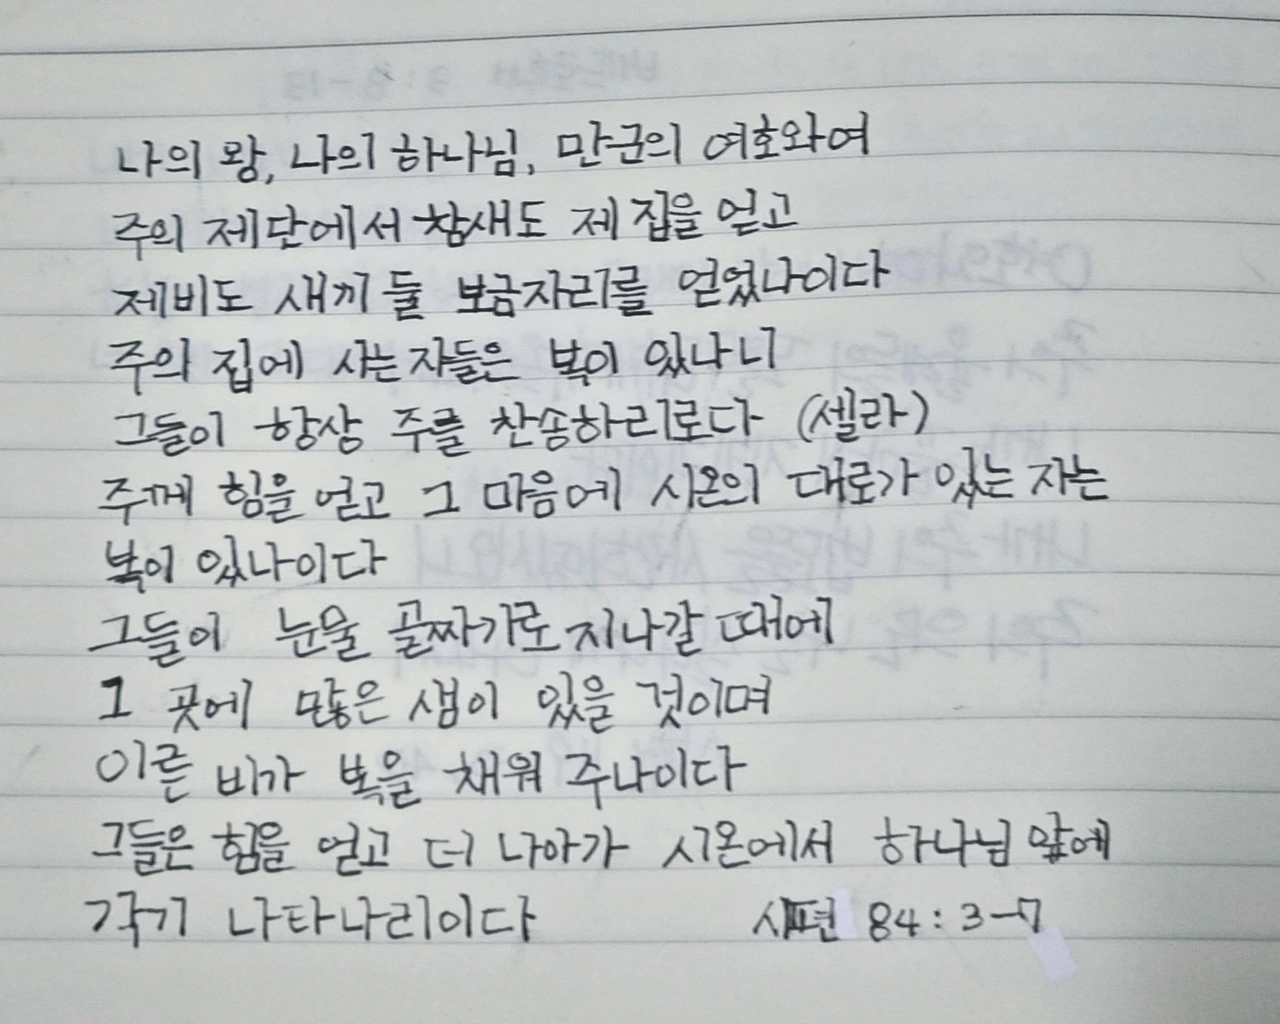 나의 왕, 나의 하나님, 만군의 여호와여
주의 제단에서 참새도 제 집을 얻고
제비도 새끼 둘 보금자리를 얻었나이다
주의 집에 사는 자들은 복이 있나니
그들이 항상 주를 찬송하리로다 (셀라)
주께 힘을 얻고 그 마음에 시온의 대로가 있는 자는
복이 있나이다
그들이 눈물 골짜기로 지나갈 때에
그 곳에 많은 샘이 있을 것이며
이른 비가 복을 채워 주나이다
그들은 힘을 얻고 더 나아가 시온에서 하나님 앞에
각기 나타나리이다 시편 84:3-7